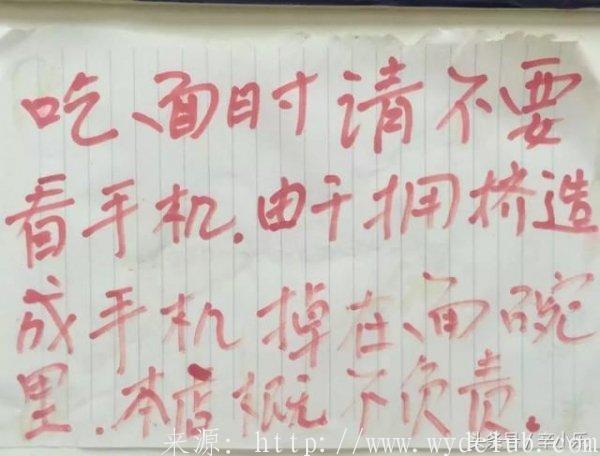 吃面时请不要
看手机.由于拥挤造
成手机掉在面碗
里.本店概不负责.
来源: http://www.wydclub.com